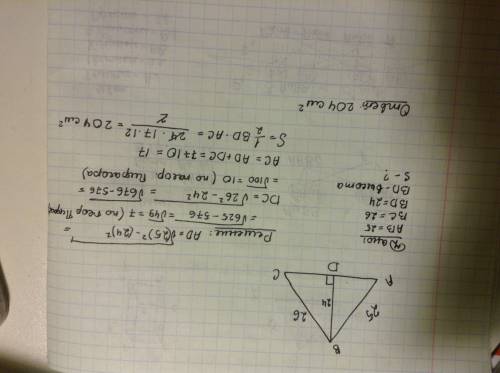 B
25
26
24
A
D
C
Дано:
AB = 25
BC = 26
BD = 24
BD - высота
S - ?
Решение: AD = √(25)² - (24)² =
= √625 - 576 = √49 = 7 (по теор.
DC = √26² - 24² = √676 - 576 =
= √100 = 10 (по теор. Пифагора)
AC = AD + DC = 7 + 10 = 17
S = 1/2 BD · AC = 24 · 17 · 12 / 2 = 204 см²
Ответ: 204 см²